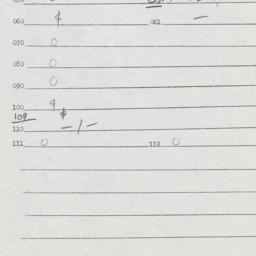 060 ¢ 061 —
070 0
080 0
090 0
100 ¢
109 ¢
110 — / —
111 0 112 0